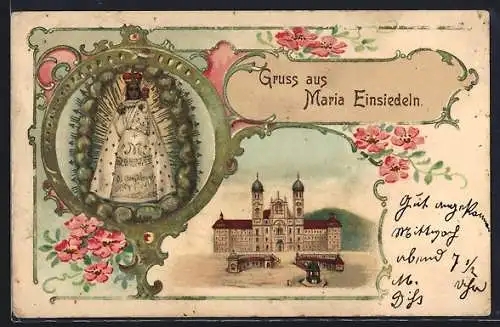 Gruss aus
Maria Einsiedeln.
Gut angekommen
Mittwoch
abend 7 1/2
Uhr
M.